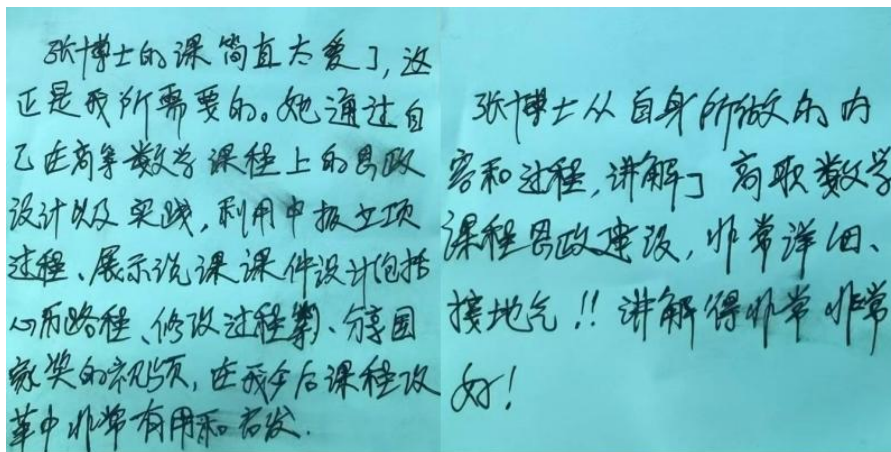 张博士的课简直太爱了,这
正是我所需要的。她通过自
己在高等数学课程上的思政
设计以及实践,利用申报立项
过程、展示说课课件设计(包括
心历路程、修改过程等)、分享国
家奖的视频,在我今后课程改
革中非常有用和启发.
张博士从自身所做的内
容和过程,讲解了高职数学
课程思政建设,非常详细、
接地气!!讲解得非常非常
好!